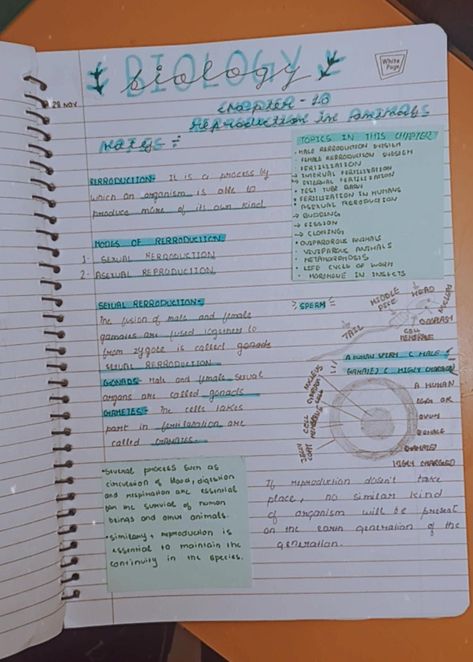 BIOLOGY
biology
White Page
28 NOV
Chapter - 13
Reproduction in animals
Notes :
TOPICS IN THIS CHAPTER
• MALE REPRODUCTION SYSTEM
• FEMALE REPRODUCTION SYSTEM
• FERTILIZATION
→ INTERNAL FERTILIZATION
→ EXTERNAL FERTILIZATION
• TEST TUBE BABY
• FERTILIZATION IN HUMANS
• ASEXUAL REPRODUCTION
→ BUDDING
→ FISSION
→ CLONING
• OVIPAROROUS ANIMALS
• VIVIPAROUS ANIMALS
• METAMORPHOSIS
• LIFE CYCLE OF
• HORMONE IN INSECTS
REPRODUCTION: It is a process by
which an organism is able to
produce more of its own kind
MODES OF REPRODUCTION
1- SEXUAL REPRODUCTION
2- ASEXUAL REPRODUCTION
SEXUAL REPRODUCTION:-
The fusion of male and female
gametes are fused together to
from zygote is called gonads
SEXUAL REPRODUCTION
GONADS:- Male and female sexual
organs are called gonads
GAMETES:- The cells takes
part in fertilization are
called GAMETES.
• SPERM
TAIL
MIDDLE PIECE
HEAD
NUCLEUS
CYTOPLASM
CELL MEMBRANE
A HUMAN SPERM ( MALE
GAMATE) ( HIGLY CHARGED
NUCLEUS
CELL MEMBRANE
JELLY COAT
A HUMAN
EGG OR
OVUM
FEMALE
GAMATE)
HIGLY CHARGED
• Several process such as
circulation of blood, digestion
and respiration are essential
for the survival of human
beings and other animals.
• Similarly, reproduction is
essential to maintain the
continuity in the species.
If reproduction doesn't take
place, no similar kind
of organism will be present
on the earth generation of the
generation.